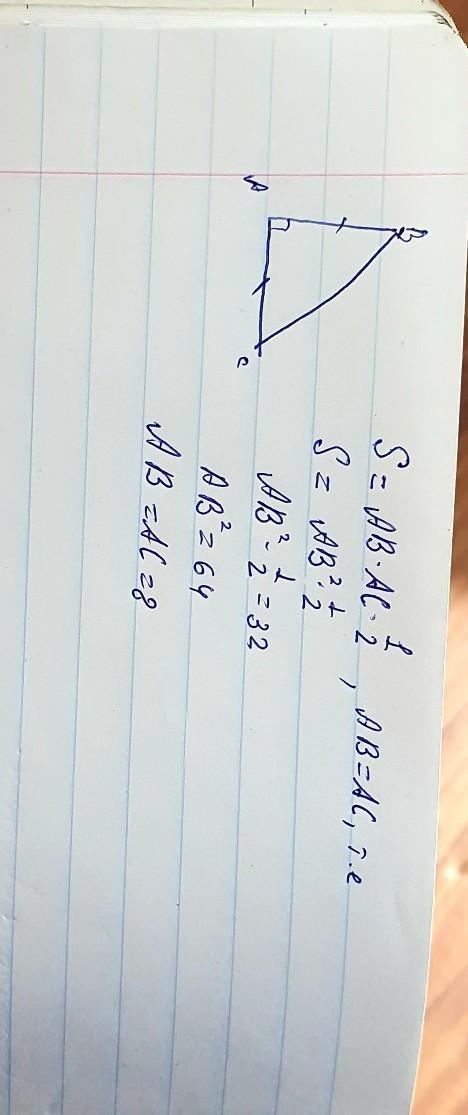 B
A
C
S = AB · AC · 1/2, AB = AC, т.е
S = AB² · 1/2
AB² · 1/2 = 32
AB² = 64
AB = AC = 8